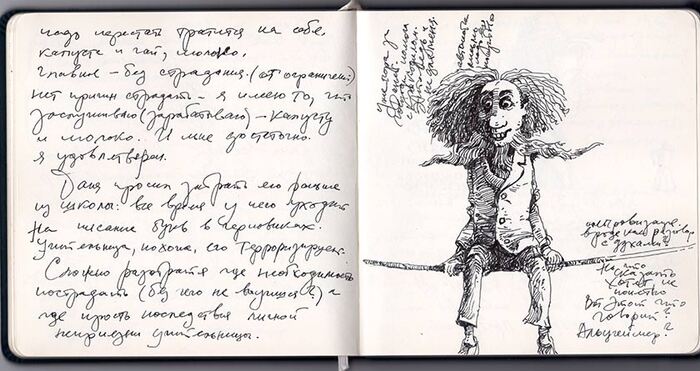 надо перестать тратится на себя.
капуста и чай, молоко.
Главное - без страдания. (от ограничений)
нет причин страдать - я имею то, что
заслуживаю (зарабатываю) - капусту
и молоко. И мне достаточно.
я удовлетворен.
Даня просил забрать его раньше
из школы: все время у него уходит
на писание букв в черновиках.
Учительница, похоже, его терроризирует.
Сложно разобраться где необходимость
пострадать (без чего не научишься) а
где просто последствия личной
неприязни учительницы.
импровизация
вроде как разговор
с духами?
Но что
сказать
хотят, не
понятно
Вот этот что
говорит?
Альцгеймер?